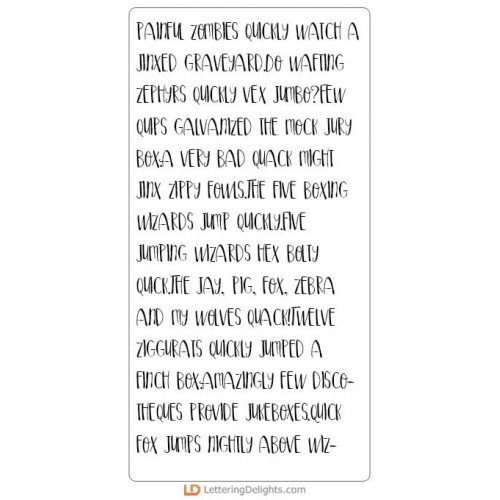 PAINFUL ZOMBIES QUICKLY WATCH A
JINXED GRAVEYARD.DO WAFTING
ZEPHYRS QUICKLY VEX JUMBO?FEW
QUIPS GALVANIZED THE MOCK JURY
BOX.A VERY BAD QUACK MIGHT
JINX ZIPPY FOWLS.THE FIVE BOXING
WIZARDS JUMP QUICKLY.FIVE
JUMPING WIZARDS HEX BOLTY
QUICK.THE JAY, PIG, FOX, ZEBRA
AND MY WOLVES QUACK!TWELVE
ZIGGURATS QUICKLY JUMPED A
FINCH BOX.AMAZINGLY FEW DISCO-
THEQUES PROVIDE JUKEBOXES.QUICK
FOX JUMPS NIGHTLY ABOVE WIZ-
LD LetteringDelights.com